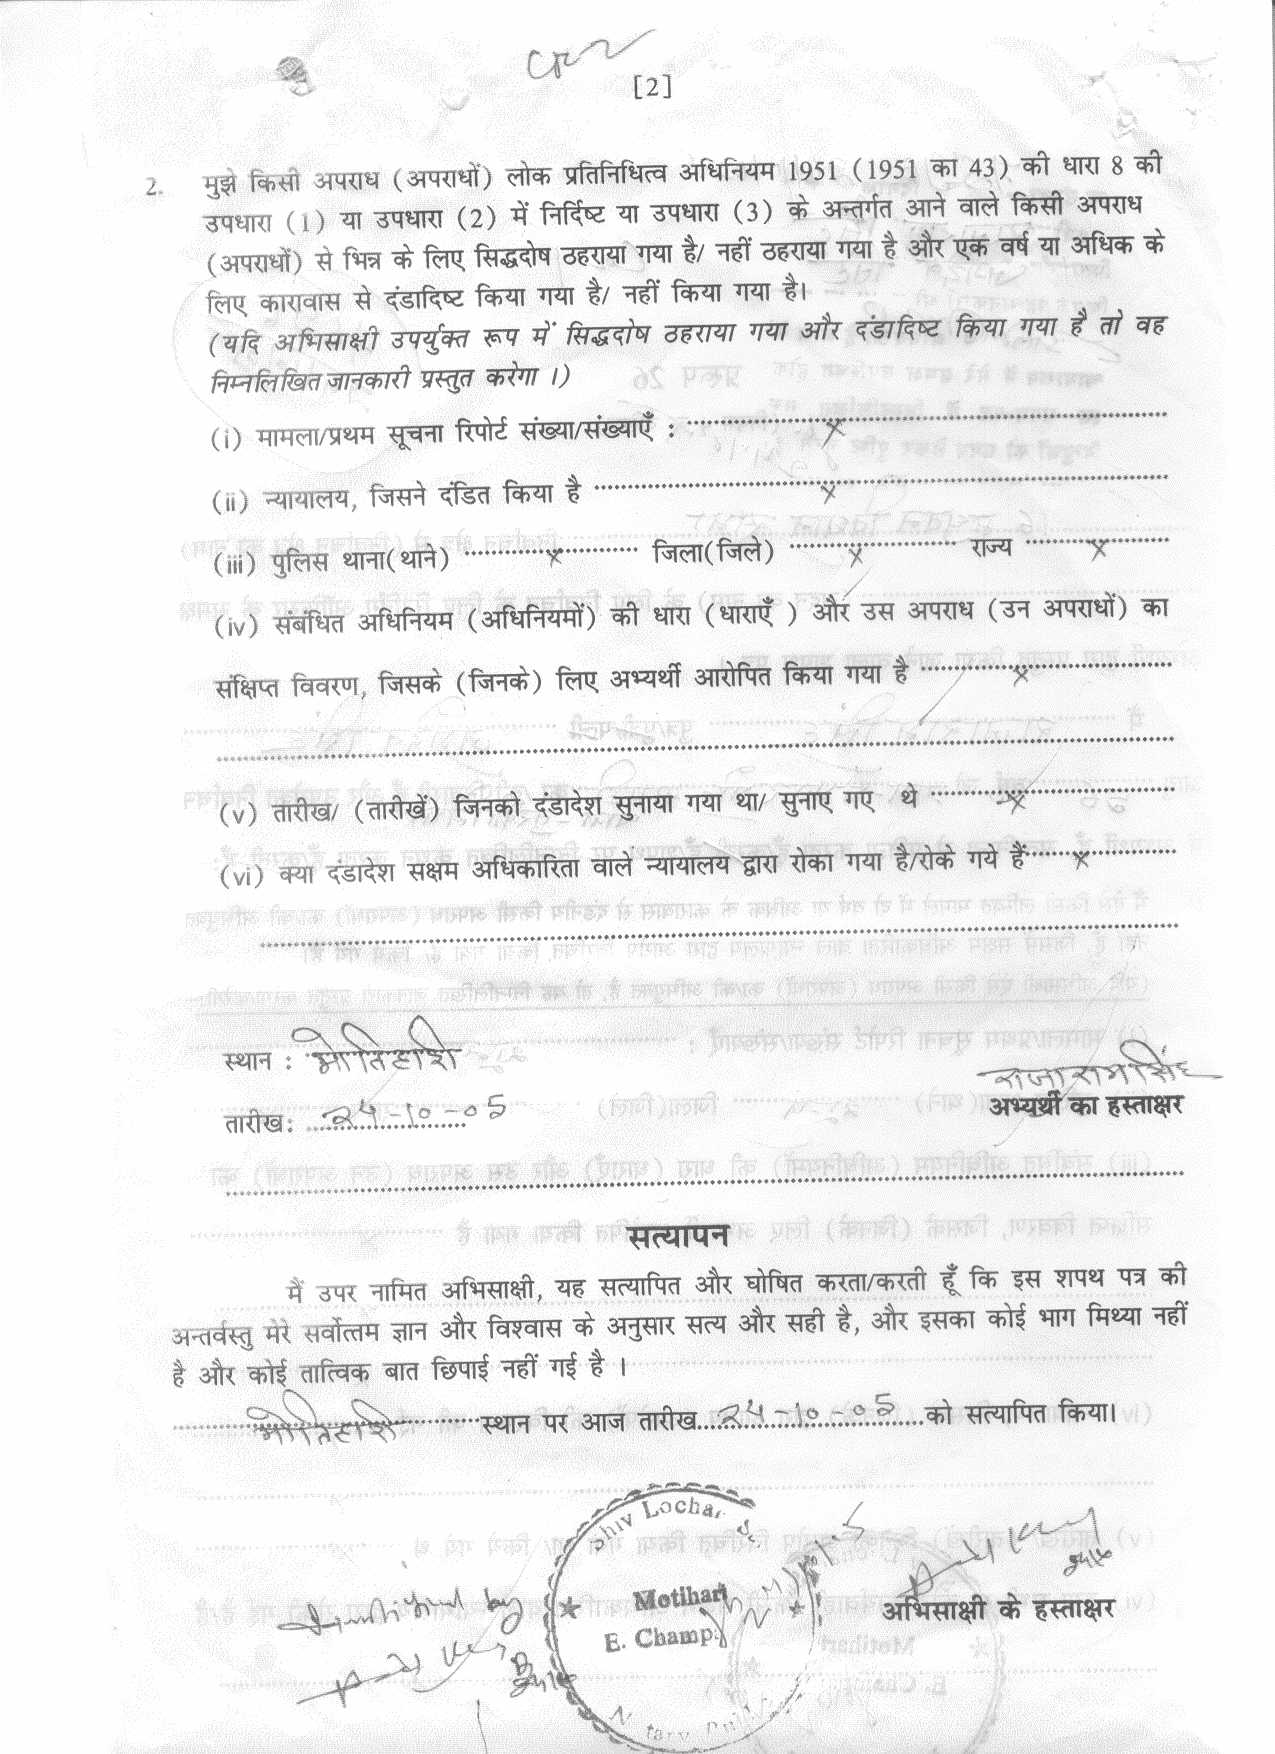 [2]
2. मुझे किसी अपराध (अपराधों) लोक प्रतिनिधित्व अधिनियम 1951 (1951 का 43) की धारा 8 की
उपधारा (1) या उपधारा (2) में निर्दिष्ट या उपधारा (3) के अन्तर्गत आने वाले किसी अपराध
(अपराधों) से भिन्न के लिए सिद्धदोष ठहराया गया है/ नहीं ठहराया गया है और एक वर्ष या अधिक के
लिए कारावास से दंडादिष्ट किया गया है/ नहीं किया गया है।
(यदि अभिसाक्षी उपर्युक्त रूप में सिद्धदोष ठहराया गया और दंडादिष्ट किया गया है तो वह
निम्नलिखित जानकारी प्रस्तुत करेगा ।)
(i) मामला/प्रथम सूचना रिपोर्ट संख्या/संख्याएँ : x
(ii) न्यायालय, जिसने दंडित किया है x
(iii) पुलिस थाना(थाने) x जिला(जिले) x राज्य x
(iv) संबंधित अधिनियम (अधिनियमों) की धारा (धाराएँ ) और उस अपराध (उन अपराधों) का
संक्षिप्त विवरण, जिसके (जिनके) लिए अभ्यर्थी आरोपित किया गया है x
(v) तारीख/ (तारीखें) जिनको दंडादेश सुनाया गया था/ सुनाए गए थे x
(vi) क्या दंडादेश सक्षम अधिकारिता वाले न्यायालय द्वारा रोका गया है/रोके गये हैं x
स्थान : मोतिहारी
राजाराम सिंह
तारीख: 24-10-05
अभ्यर्थी का हस्ताक्षर
सत्यापन
मैं उपर नामित अभिसाक्षी, यह सत्यापित और घोषित करता/करती हूँ कि इस शपथ पत्र की
अन्तर्वस्तु मेरे सर्वोत्तम ज्ञान और विश्वास के अनुसार सत्य और सही है, और इसका कोई भाग मिथ्या नहीं
है और कोई तात्विक बात छिपाई नहीं गई है ।
मोतिहारी स्थान पर आज तारीख 24-10-05 को सत्यापित किया।
Shiv Lochan
Motihari
E. Champ.
Notary Public
अभिसाक्षी के हस्ताक्षर